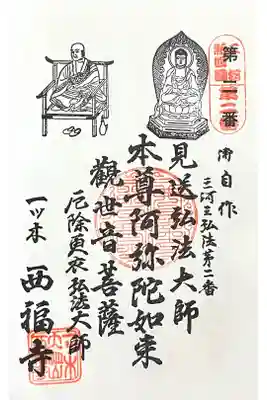 御自作
三河三弘法第二番
見送弘法大師
本尊阿弥陀如来
觀世音菩薩
厄除更衣弘法大師
一ツ木 西福寺